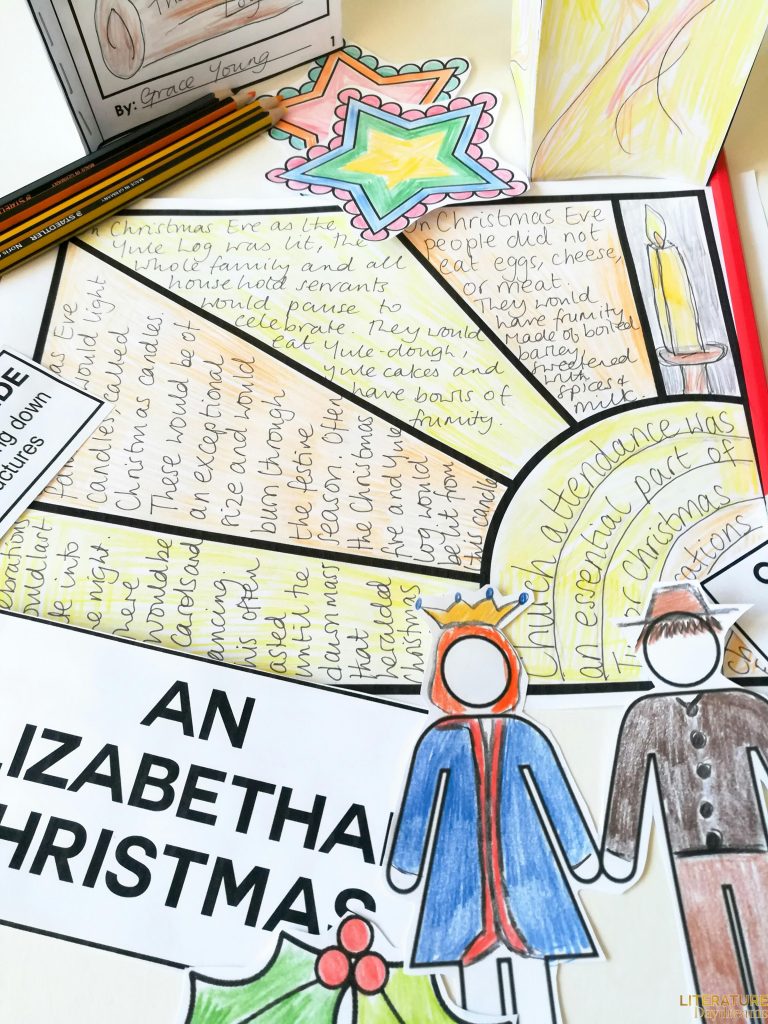 The
Log
1
By: Grace Young
MADE IN GERMANY
STAEDTLER Noris
MADE IN GERMANY
n Christmas Eve as the
Yule Log was lit, the
whole family and all
household servants
would pause to
celebrate. They would
eat Yule-dough,
yule cakes and
have bowls of
frumity.
On Christmas Eve
people did not
eat eggs, cheese,
or meat.
They would
have frumity
made of boiled
barley
sweetened
with
spices &
milk.
as Eve
would light
candles, called
Christmas candles
These would be of
an exceptional
size and would
burn through
the festive
season. Often
the Christmas
fire and Yule
log would
be lit from
this candle
would last
into
the night.
here
would be
carols and
ancing.
his often
asted
until the
dawn mass
that
heralded
Christmas
Church attendance was
an essential part of
Christmas
ations
Ch
DE
ng down
ctures
AN
LIZABETHA
HRISTMAS
LITERATURE
Daydreams